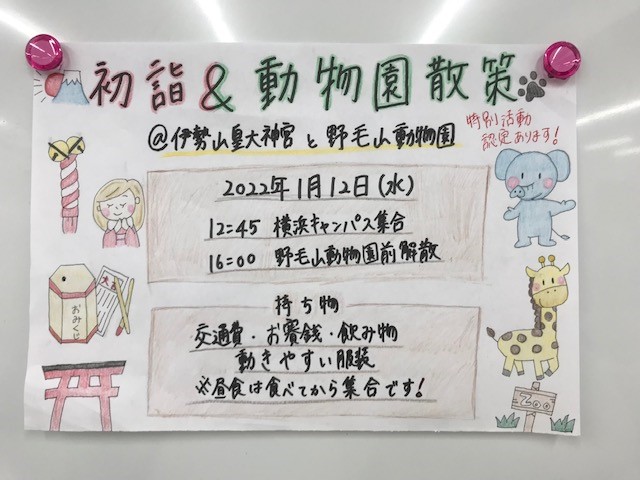 初詣&動物園散策
@伊勢山皇大神宮と野毛山動物園
特別活動
認定あります!
2022年1月12日(水)
12:45 横浜キャンパス集合
16:00 野毛山動物園前解散
持ち物
交通費・お賽銭・飲み物
動きやすい服装
※昼食は食べてから集合です!
おみくじ
大吉
Zoo